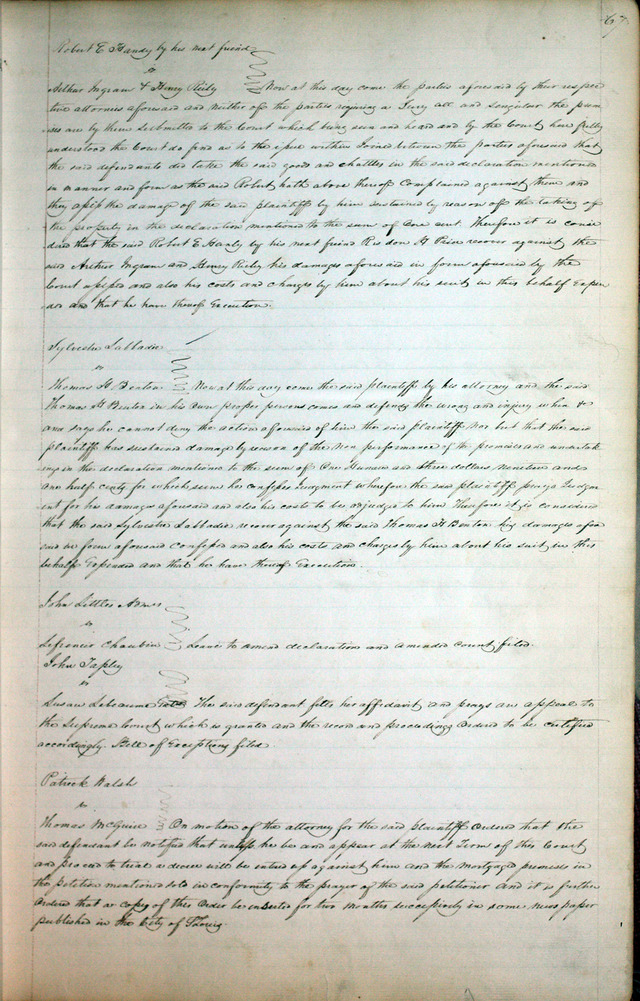 67
Robert E Handy by his next friend
vs
Arthur Ingram & Henry Reily Now at this day come the parties aforesaid by their respec
tive attornies aforesaid and neither of the parties requiring a Jury all and singular the prem
ises are by them submitted to the Court which being seen and heard and by the Court here fully
understood the Court do find as to the issue within Joined between the parties aforesaid that
the said defendants did take the said goods and chattles in the said declaration mentioned
in manner and form as the said Robert hath above thereof Complained against them and
they assess the damage of the said plaintiff by him sustained by reason of the taking of
the property in the declaration mentioned to the sum of One cent. Therefore it is consi
dered that the said Robert E Handy by his next friend H recover against the
said Arthur Ingram and Henry Reily his damages aforesaid in form aforesaid by the
Court assessed and also his costs and charges by him about his suit in this behalf Expen
ded and that he have thereof Execution.
Sylvestre Labbadie
vs
Thomas H Benton Now at this day come the said plaintiff by his attorney and the said
Thomas H Benton in his own proper person comes and defends the wrong and injury when &
and says he cannot deny the action aforesaid of him the said plaintiff Nor but that the said
plaintiff has sustained damage by reason of the Non performance of the promises and undertak
ings in the declaration mentioned to the sum of One Hundred and three dollars Nineteen and
an half cents for which sum he confesses Judgment wherefore the said plaintiff prays Judgm
ent for his damages aforesaid and also his costs to be adjudged to him Therefore it is considered
that the said Sylvestre Labbadie recover against the said Thomas H Benton his damages afore
said in form aforesaid confessed and also his costs and charges by him about his suit in this
behalf Expended and that he have thereof Execution.
John Little's Admrs
vs
Lefrancis Chauvin Leave to amend declaration and amended count filed.
John Tapley
vs
Susan Lebeaume The said defendant files her affidavit and prays an appeal to
the Supreme Court which is granted and the record and proceedings ordered to be certified
accordingly. Bill of Exceptions filed
Patrick Walsh
vs
Thomas McGuire On motion of the attorney for the said plaintiff Ordered that the
said defendant be notified that unless he be and appear at the next Term of this Court
and proceed to trial a decree will be entered up against him and the Mortgaged premises in
the petition mentioned sold in conformity to the prayer of the said petitioner and it is further
Ordered that a copy of this Order be inserted for two months successively in some News paper
published in the City of St Louis.